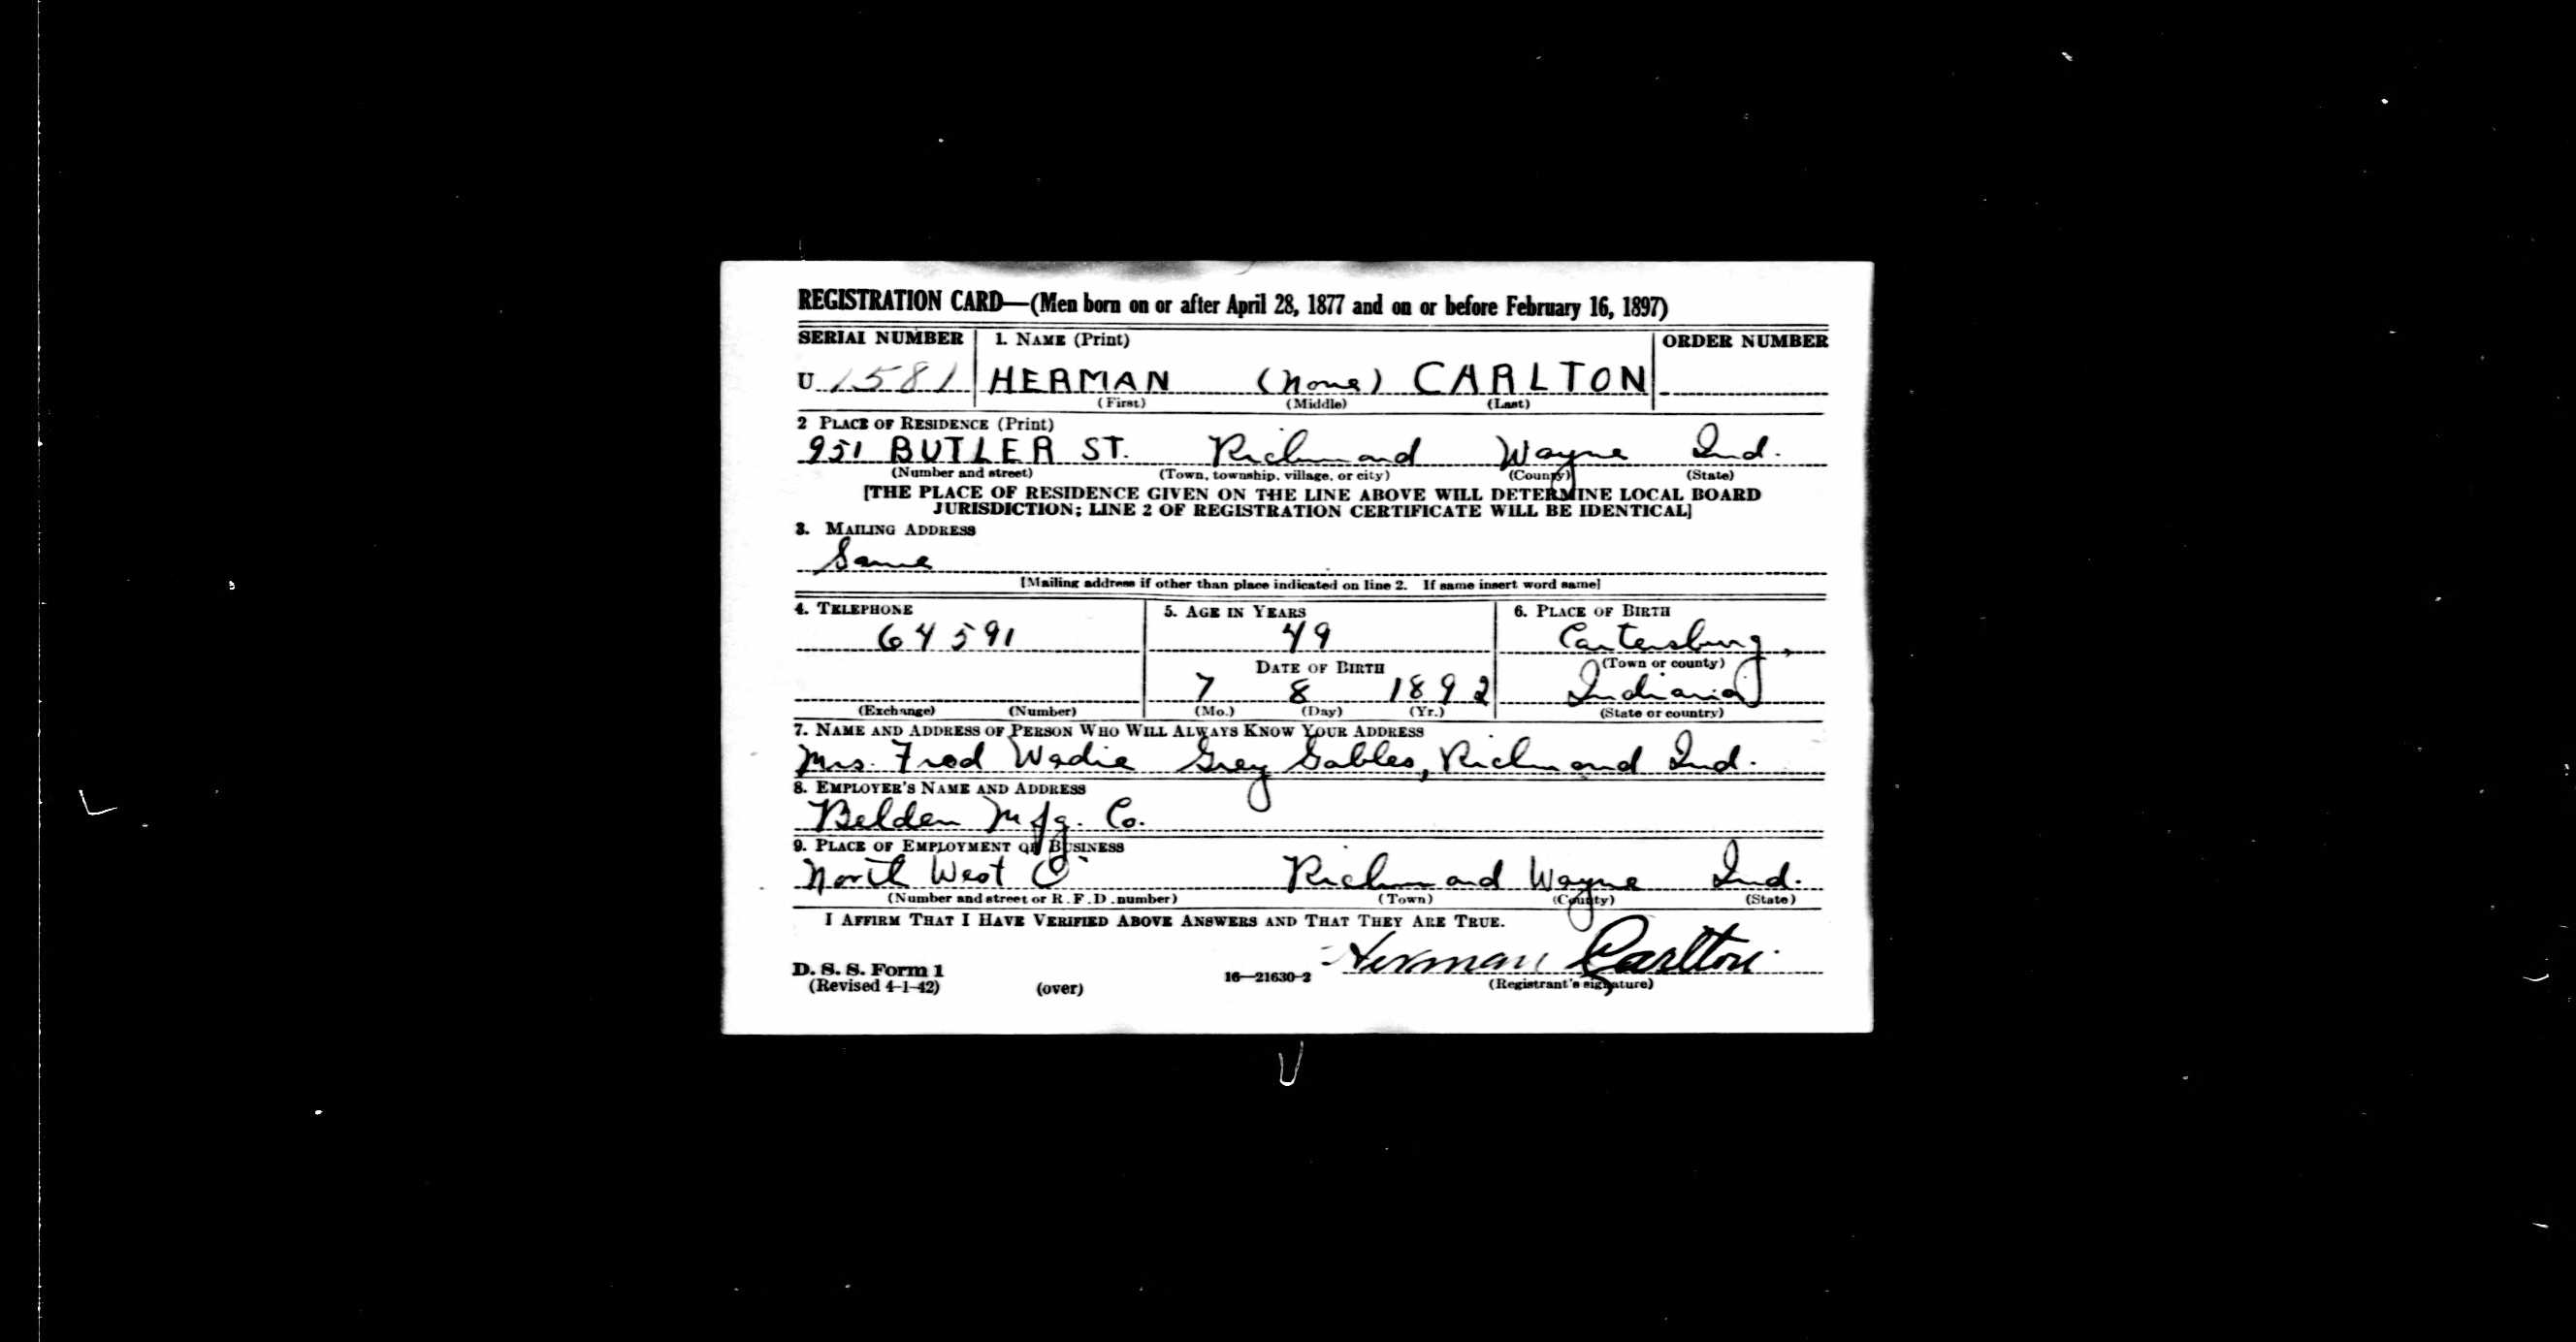 REGISTRATION CARD—(Men born on or after April 28, 1877 and on or before February 16, 1897)
SERIAL NUMBER 1. NAME (Print) ORDER NUMBER
U 1581 HERMAN (None) CARLTON
(First) (Middle) (Last)
2 PLACE OF RESIDENCE (Print)
951 BUTLER ST. Richmond Wayne Ind.
(Number and street) (Town, township, village, or city) (County) (State)
[THE PLACE OF RESIDENCE GIVEN ON THE LINE ABOVE WILL DETERMINE LOCAL BOARD
JURISDICTION; LINE 2 OF REGISTRATION CERTIFICATE WILL BE IDENTICAL]
3. MAILING ADDRESS
Same
[Mailing address if other than place indicated on line 2. If same insert word same]
4. TELEPHONE 5. AGE IN YEARS 6. PLACE OF BIRTH
64591 49 Cartersburg,
DATE OF BIRTH (Town or county)
7 8 1892 Indiana
(Exchange) (Number) (Mo.) (Day) (Yr.) (State or country)
7. NAME AND ADDRESS OF PERSON WHO WILL ALWAYS KNOW YOUR ADDRESS
Mrs. Fred Wadie Grey Gables, Richmond Ind.
8. EMPLOYER'S NAME AND ADDRESS
Belden Mfg. Co.
9. PLACE OF EMPLOYMENT OR BUSINESS
North West C Richmond Wayne Ind.
(Number and street or R. F. D. number) (Town) (County) (State)
I AFFIRM THAT I HAVE VERIFIED ABOVE ANSWERS AND THAT THEY ARE TRUE.
Herman Carlton
D. S. S. Form 1 16—21630-2 (Registrant's signature)
(Revised 4-1-42) (over)